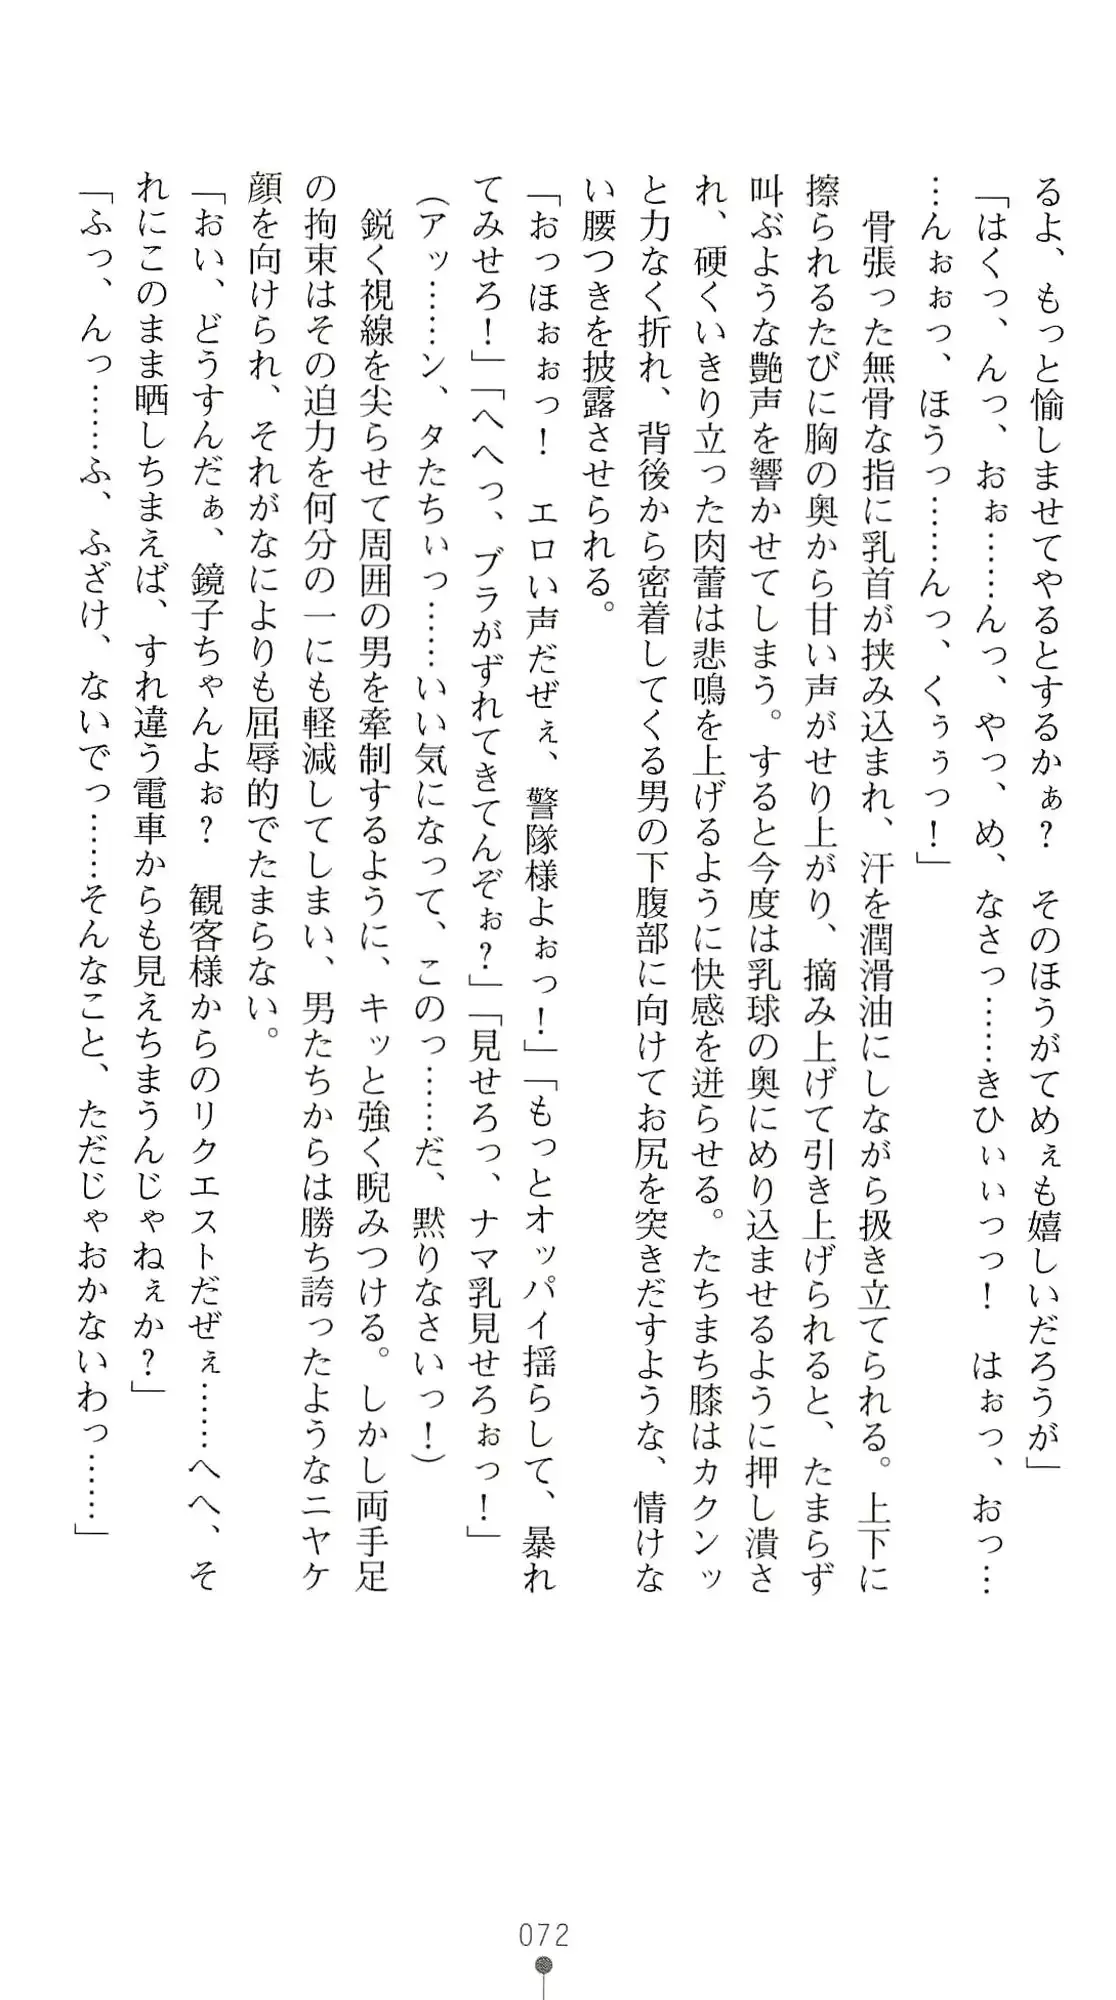 るよ、もっと愉しませてやるとするかぁ？　そのほうがてめぇも嬉しいだろうが」
「はくっ、んっ、おぉ……んっ、やっ、め、なさっ……きひぃぃっっ！　はぉっ、おっ…
…んぉぉっ、ほうっ……んっ、くぅぅっ！」
　骨張った無骨な指に乳首が挟み込まれ、汗を潤滑油にしながら扱き立てられる。上下に
擦られるたびに胸の奥から甘い声がせり上がり、摘み上げて引き上げられると、たまらず
叫ぶような艶声を響かせてしまう。すると今度は乳球の奥にめり込ませるように押し潰さ
れ、硬くいきり立った肉蕾は悲鳴を上げるように快感を迸らせる。たちまち膝はカクンッ
と力なく折れ、背後から密着してくる男の下腹部に向けてお尻を突きだすような、情けな
い腰つきを披露させられる。
「おっほぉぉっ！　エロい声だぜぇ、警隊様よぉっ！」「もっとオッパイ揺らして、暴れ
てみせろ！」「へへっ、ブラがずれてきてんぞぉ？」「見せろっ、ナマ乳見せろぉっ！」
（アッ……ン、タたちぃっ……いい気になって、このっ……だ、黙りなさいっ！）
　鋭く視線を尖らせて周囲の男を牽制するように、キッと強く睨みつける。しかし両手足
の拘束はその迫力を何分の一にも軽減してしまい、男たちからは勝ち誇ったようなニヤケ
顔を向けられ、それがなによりも屈辱的でたまらない。
「おい、どうすんだぁ、鏡子ちゃんよぉ？　観客様からのリクエストだぜぇ……へへ、そ
れにこのまま晒しちまえば、すれ違う電車からも見えちまうんじゃねぇか？」
「ふっ、んっ……ふ、ふざけ、ないでっ……そんなこと、ただじゃおかないわっ……」
072